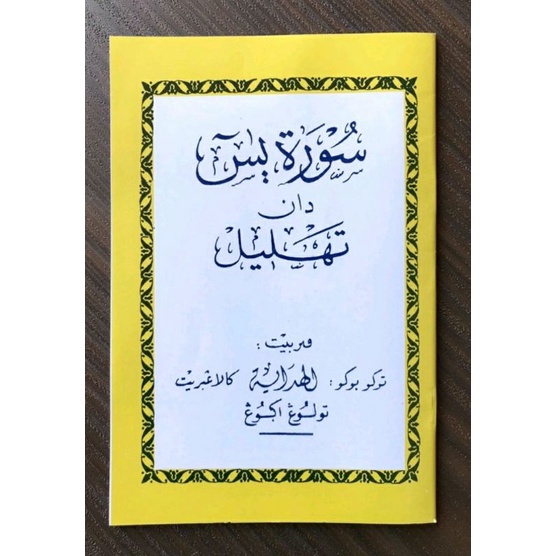 سُوْرَة يسٓ
دان
تهليل
ڤنربيت :
توكو بوكو : الهداية كالاڠبريت
تولوڠ اڬوڠ